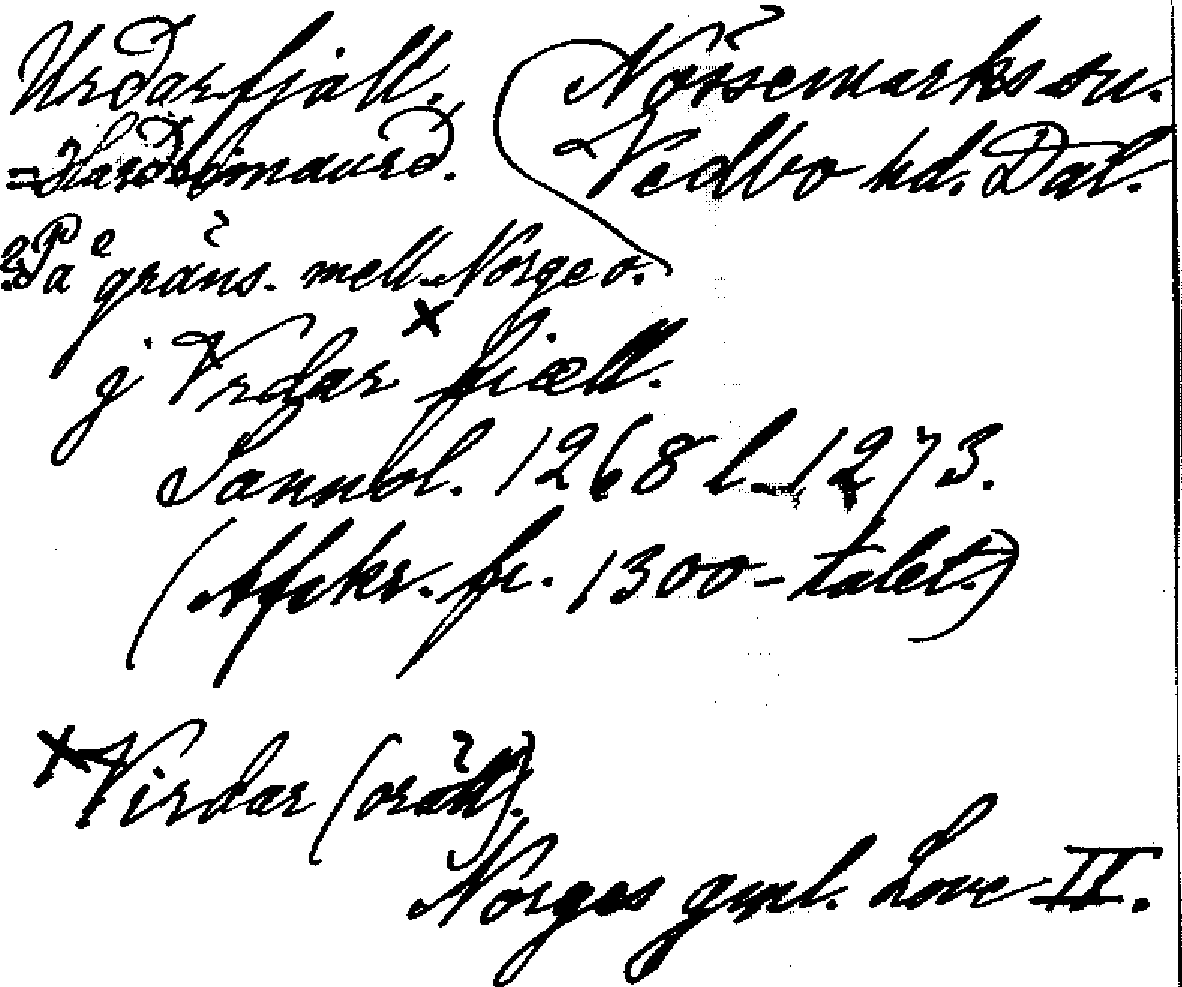 Urðarfjäll.
Nössemarks sn.
= Harðbómaurð.
Vedbo hd. Dal.
På gräns. mell. Norge o.
j Vrdar × fiæll.
Sannbl. 1268 l. 1273.
(Afskr. fr. 1300-talet.)
× Virdar (orätt).
Norges gml. Love II.